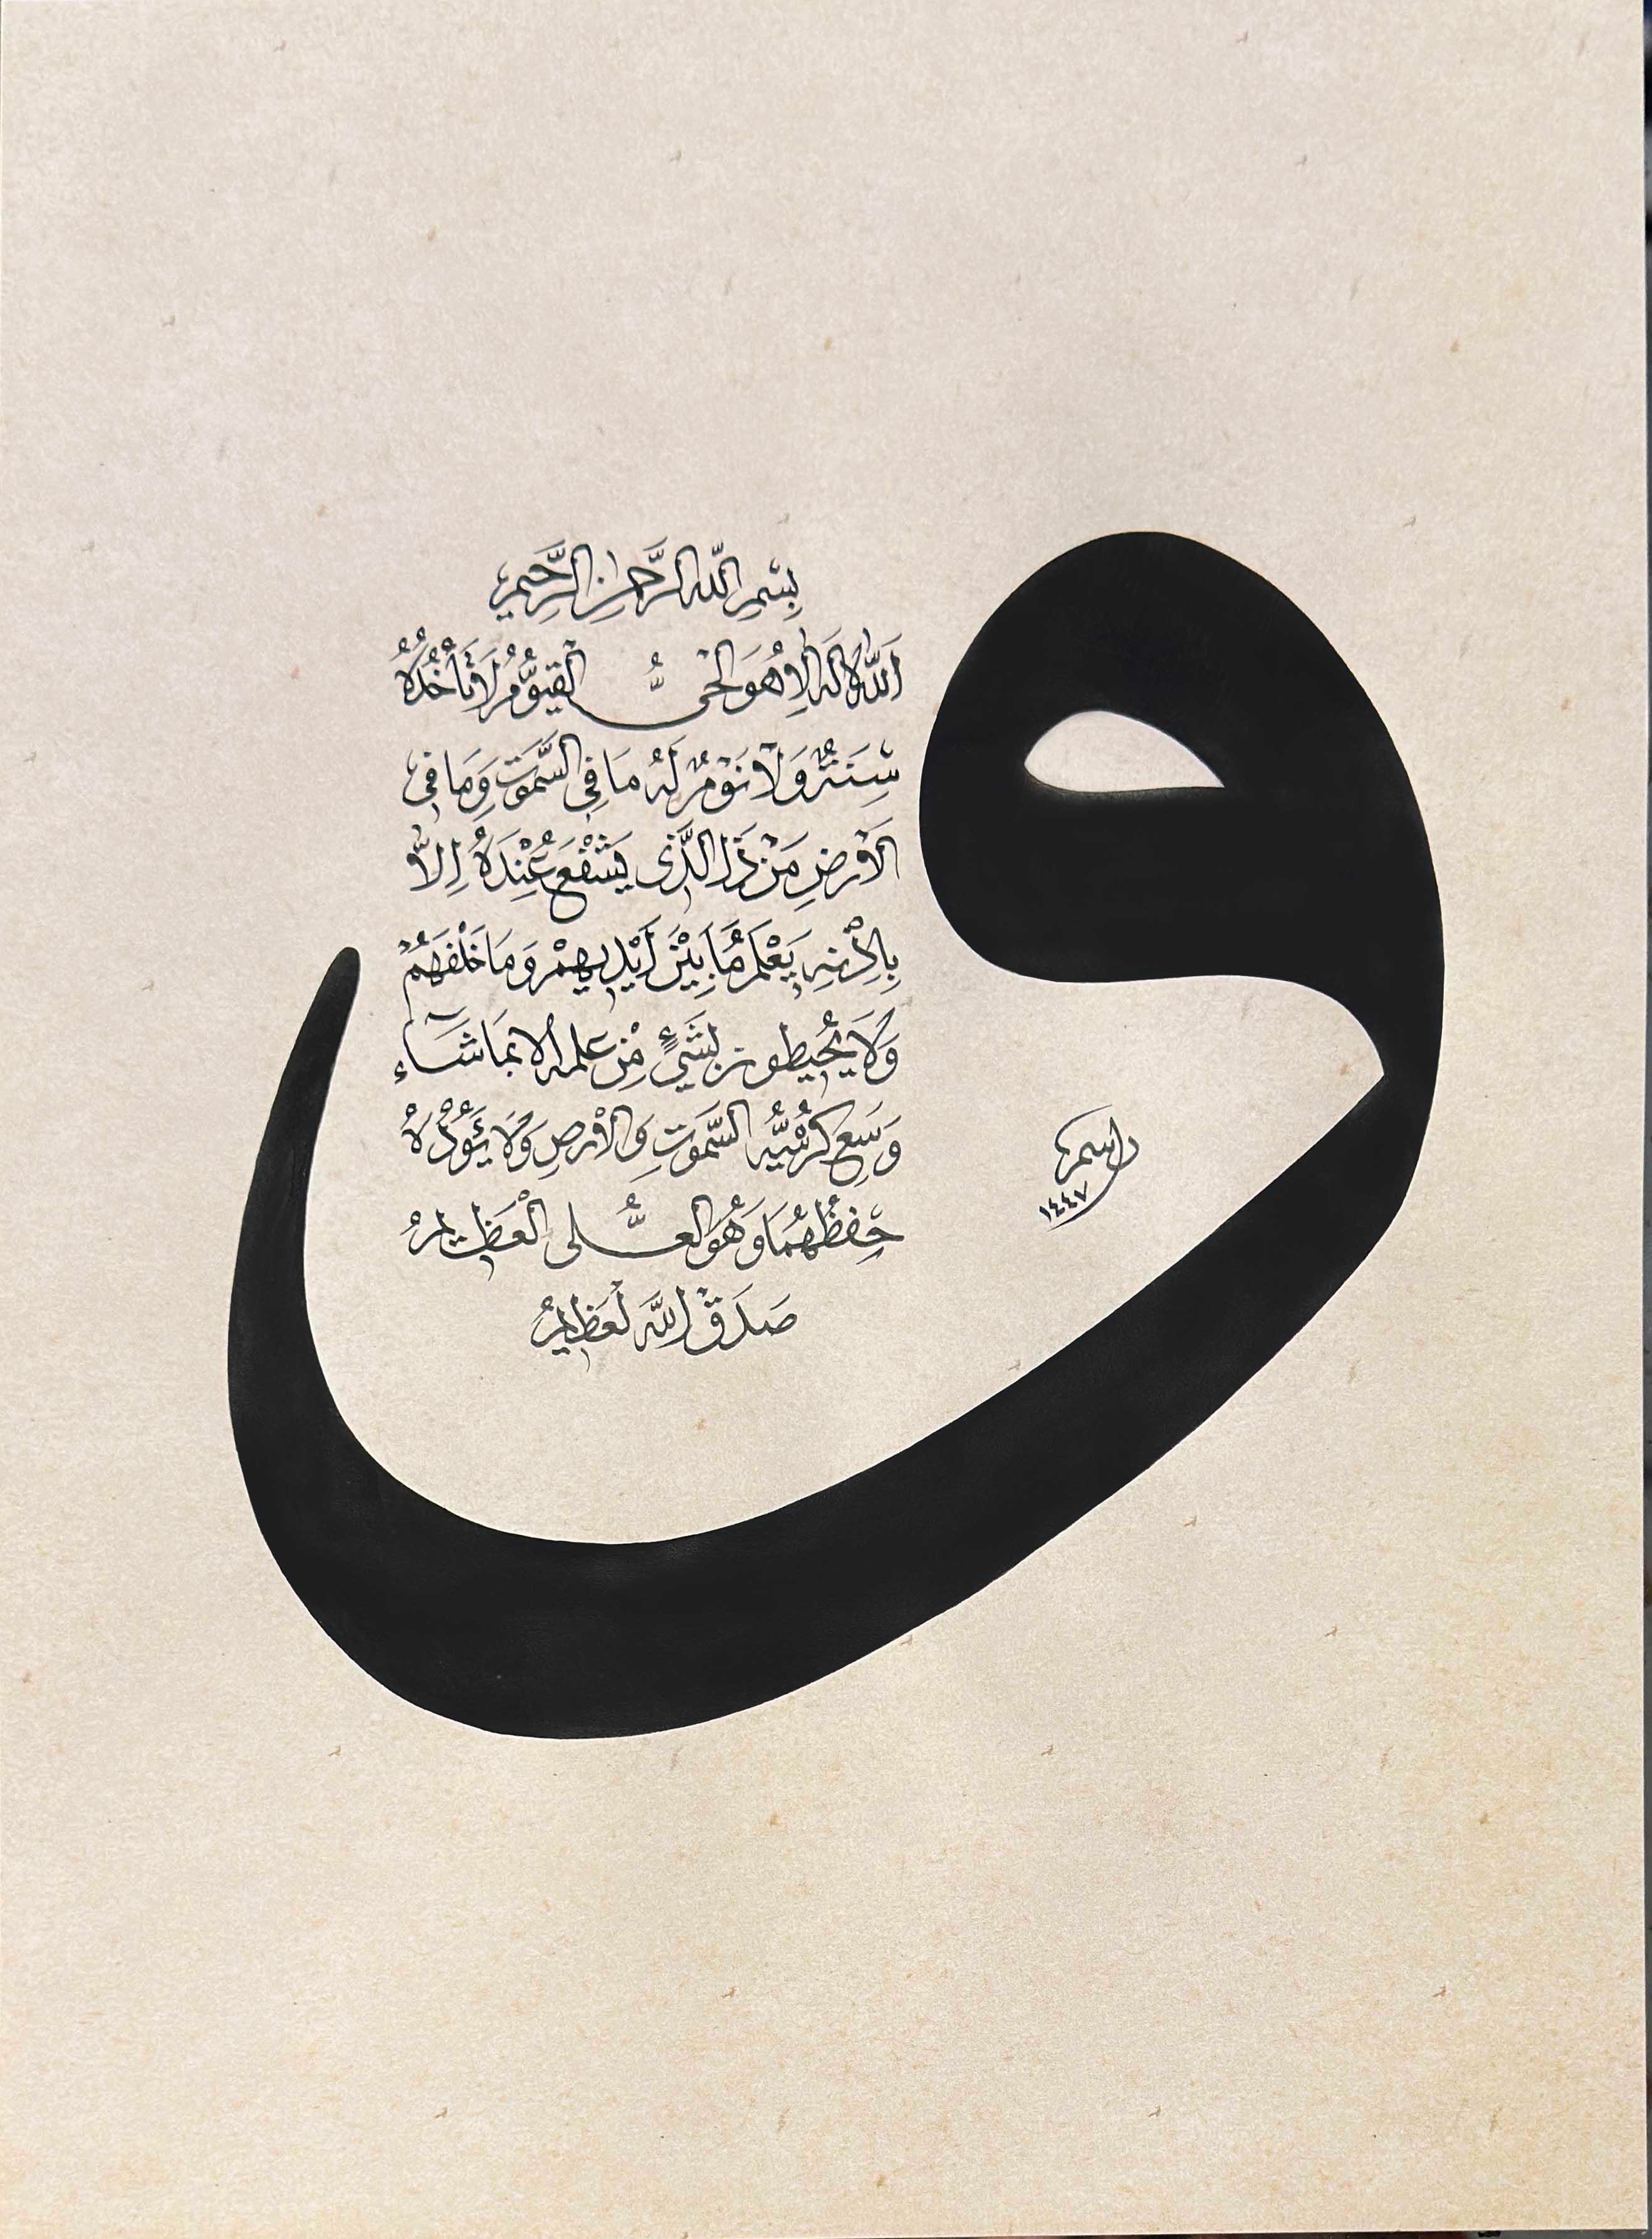 و
بِسْمِ اللّٰهِ الرَّحْمٰنِ الرَّحِيمِ
اَللّٰهُ لَا اِلٰهَ اِلَّا هُوَ الْحَىُّ الْقَيُّومُ لَا تَأْخُذُهُ
سِنَةٌ وَلَا نَوْمٌ لَهُ مَا فِى السَّمٰوَتِ وَمَا فِى
الْاَرْضِ مَنْ ذَا الَّذِى يَشْفَعُ عِنْدَهُ اِلَّا
بِاِذْنِهِ يَعْلَمُ مَا بَيْنَ اَيْدِيهِمْ وَمَا خَلْفَهُمْ
وَلَا يُحِيطُونَ بِشَيْءٍ مِنْ عِلْمِهِ اِلَّا بِمَا شَاءَ
وَسِعَ كُرْسِيُّهُ السَّمٰوَتِ وَالْاَرْضِ وَلَا يَؤُدُهُ
حِفْظُهُمَا وَهُوَ الْعَلِىُّ الْعَظِيمُ
صَدَقَ اللّٰهُ لْعَظِيمُ
١٤٤٧